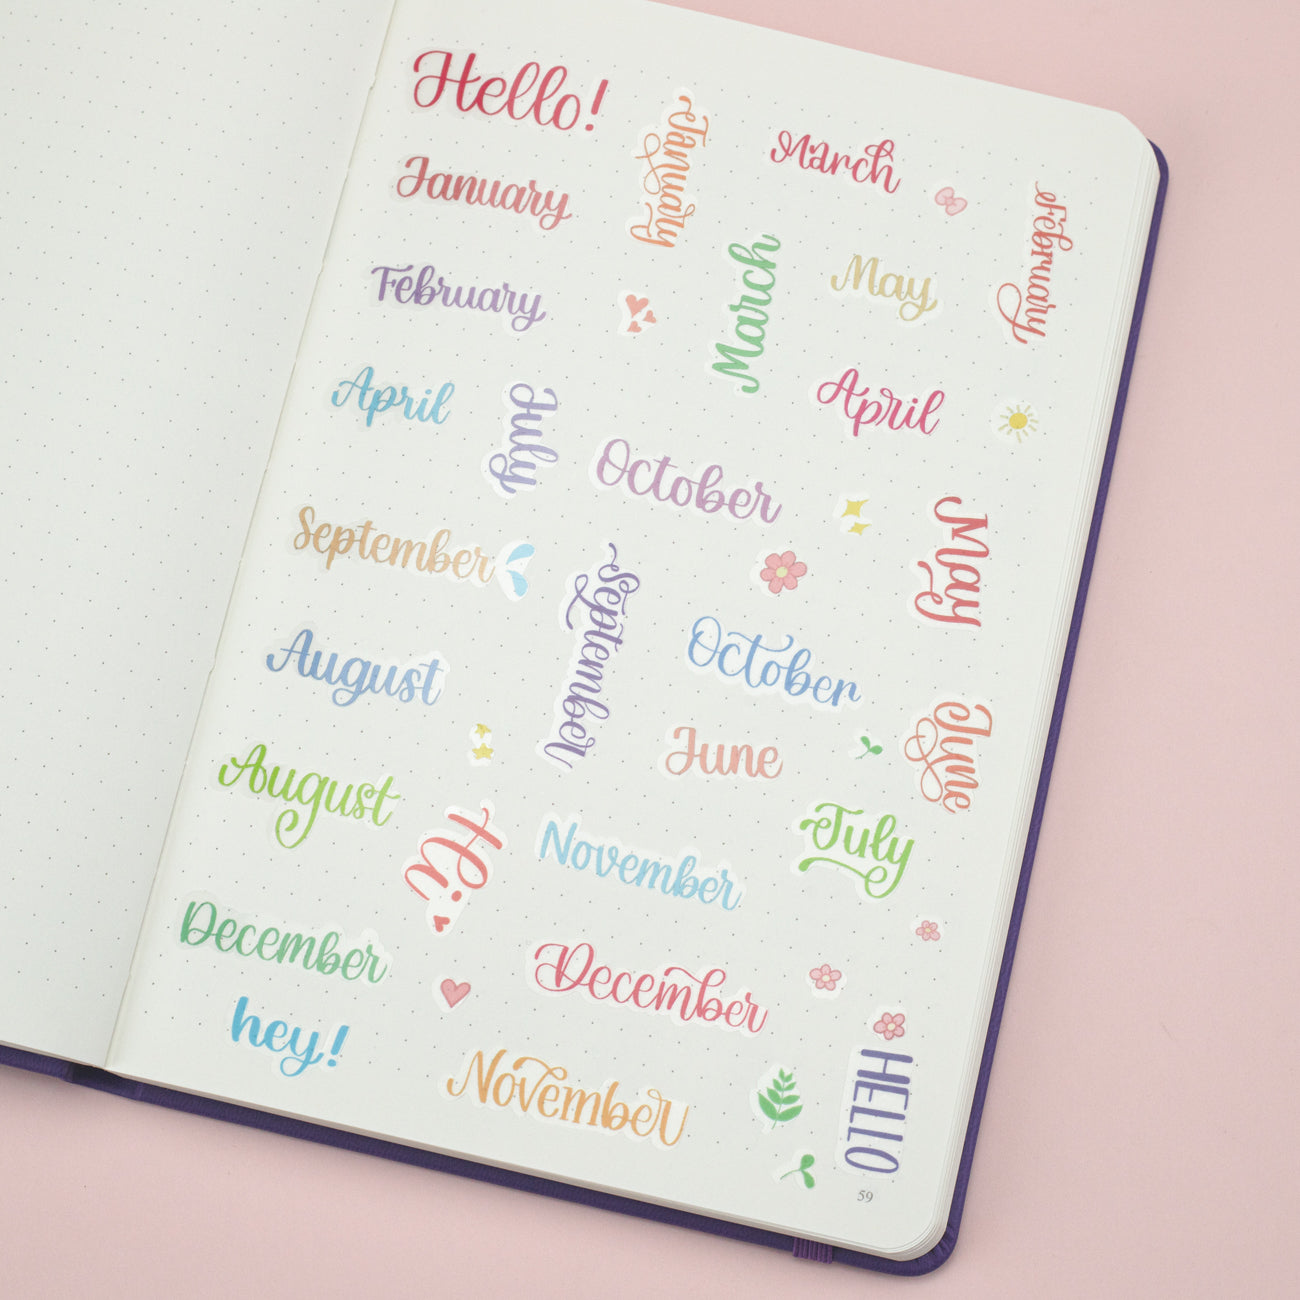 Hello!
January
March
January
February
February
March
May
April
July
April
October
May
September
September
October
August
June
June
August
Hi
November
July
December
December
hey!
November
HELLO
59